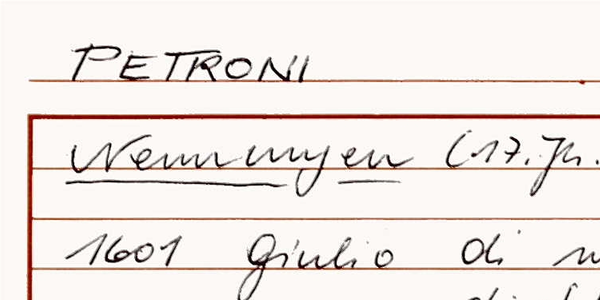 PETRONI
Nennungen (17. Jh.
1601 Giulio di
di